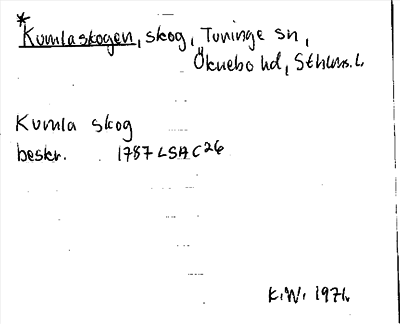 *
Kumlaskogen, skog, Turinge sn,
Öknebo hd, Sthlms. L.
Kumla skog
beskr. 1787 LSA C26
K.W. 1971.